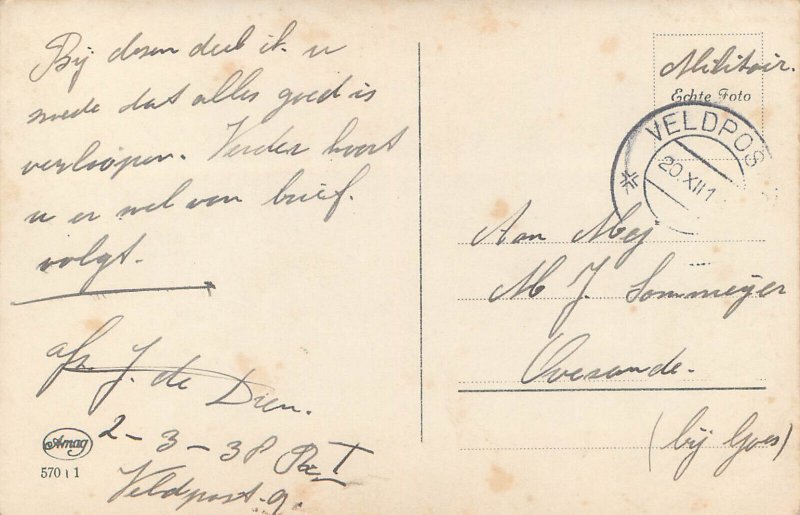 Bij desen deel ik u
mede dat alles goed is
verloopen. Verder hoort
u er wel van brief.
volgt.
afz J. de Dien.
2-3-38 R I
Veldpost 9.
Amag
570 1 1
Militair.
Echte Foto
VELDPOS
20.XII 1
Aan Mej
M J. Sommeijer
Ovesande.
(bij Goes)